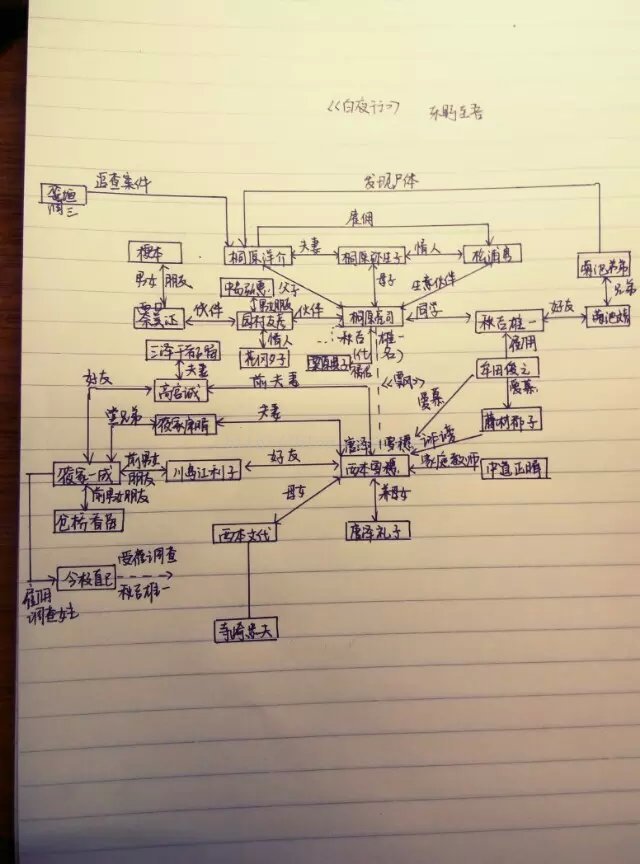 《白夜行》 东野圭吾
追查案件
发现尸体
笹垣
润三
雇佣
桐原洋介
夫妻
桐原弥生子
情人
松浦勇
菊池弟弟
兄弟
菊池
男女 朋友
父子
母子
生意伙伴
奈美江
伙伴
园村友彦
伙伴
桐原亮司
同学
秋吉雄一
好友
情人
花冈夕子
秋吉
雄一
名)
雇用
夫妻
《飘》
牟田俊之
爱慕
爱慕
好友
高宫诚
前夫妻
藤村都子
堂兄弟
筱冢康晴
夫妻
唐泽
雪穗
诽谤
筱冢一成
前男女
朋友
川岛江利子
好友
西本雪穗
家庭教师
中道正晴
前男女朋友
仓桥香苗
母女
养母女
西本文代
唐泽礼子
今枝直巳
受雇调查
秋吉雄一
雇用
调查女士
寺崎忠夫